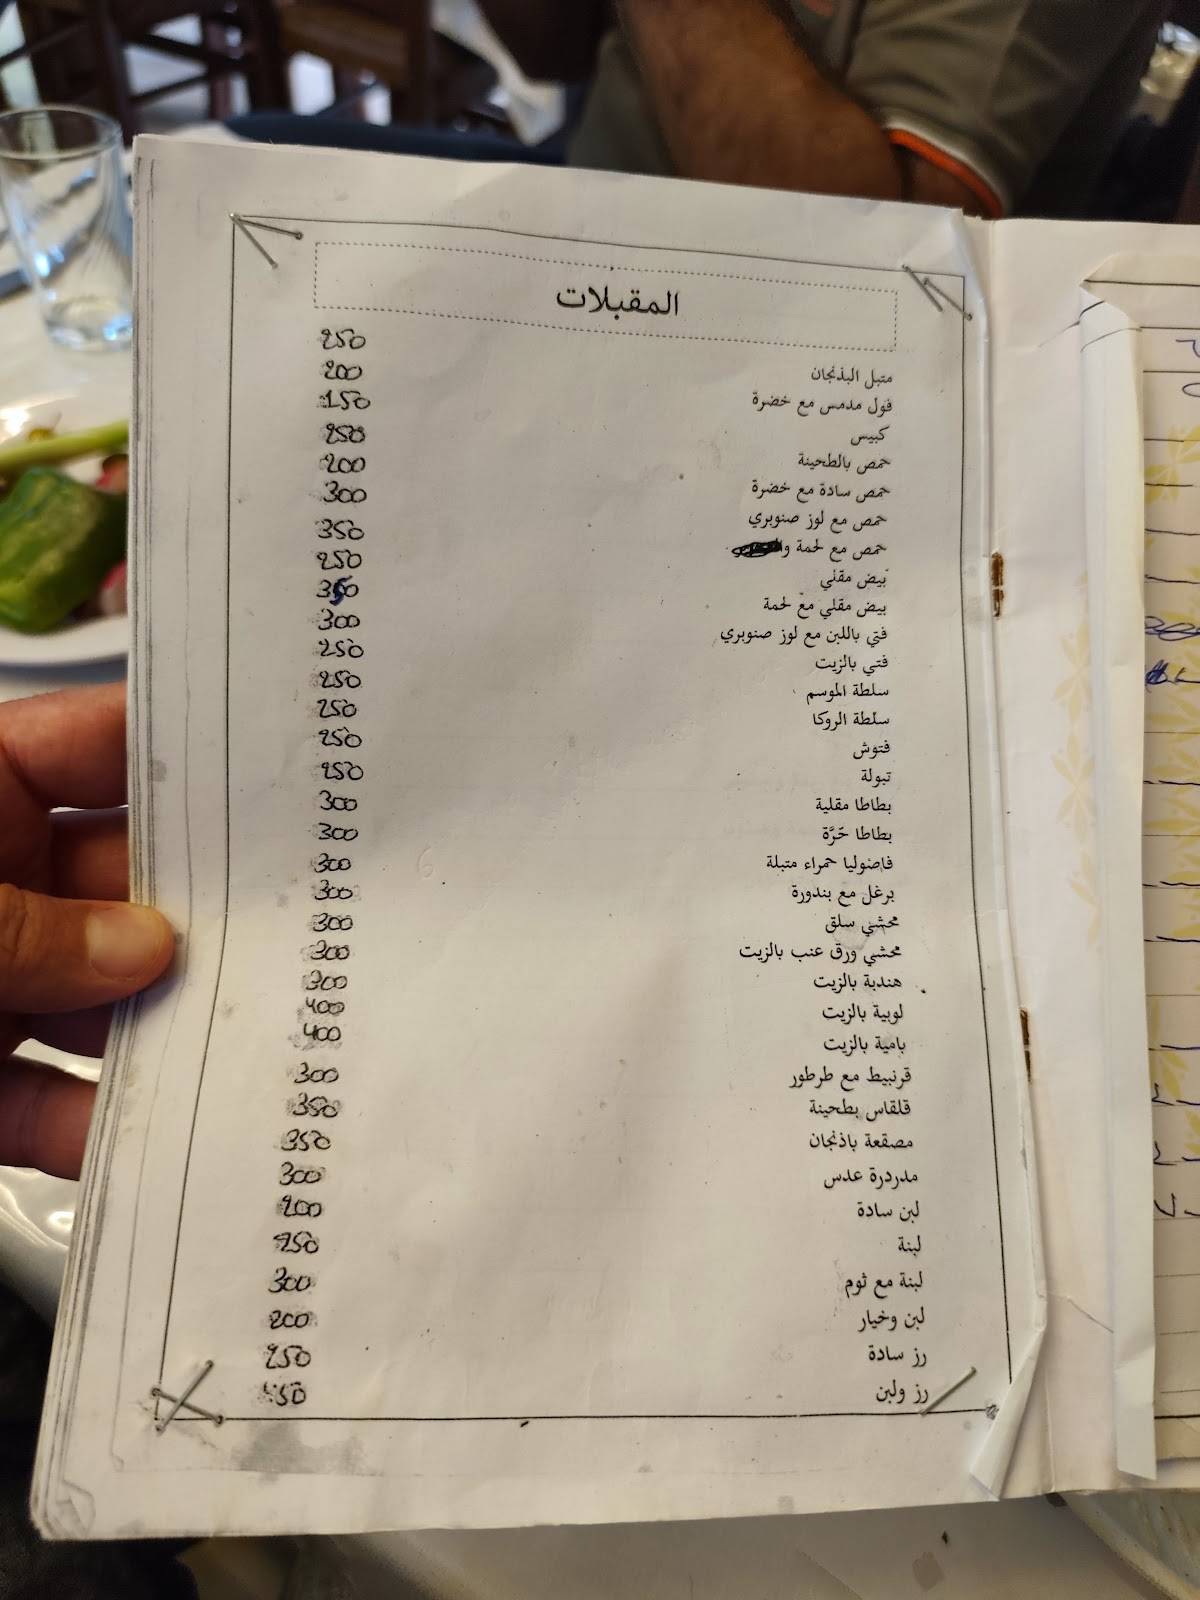 المقبلات
متبل البذنجان 250
فول مدمس مع خضرة 200
كبيس 150
حمص بالطحينة 250
حمص سادة مع خضرة 200
حمص مع لوز صنوبري 300
حمص مع لحمة 350
بيض مقلي 250
بيض مقلي مع لحمة
فتي باللبن مع لوز صنوبري 300
فتي بالزيت 250
سلطة الموسم 250
سلطة الروكا 250
فتوش 250
تبولة 250
بطاطا مقلية 300
بطاطا حَرَّة 300
فاصوليا حمراء متبلة 300
برغل مع بندورة 300
محشي سلق 300
محشي ورق عنب بالزيت 300
هندبة بالزيت 300
لوبية بالزيت 400
بامية بالزيت 400
قرنبيط مع طرطور 300
قلقاس بطحينة 350
مصقعة باذنجان 350
مدردرة عدس 300
لبن سادة 200
لبنة 250
لبنة مع ثوم 300
لبن وخيار 200
رز سادة 250
رز ولبن